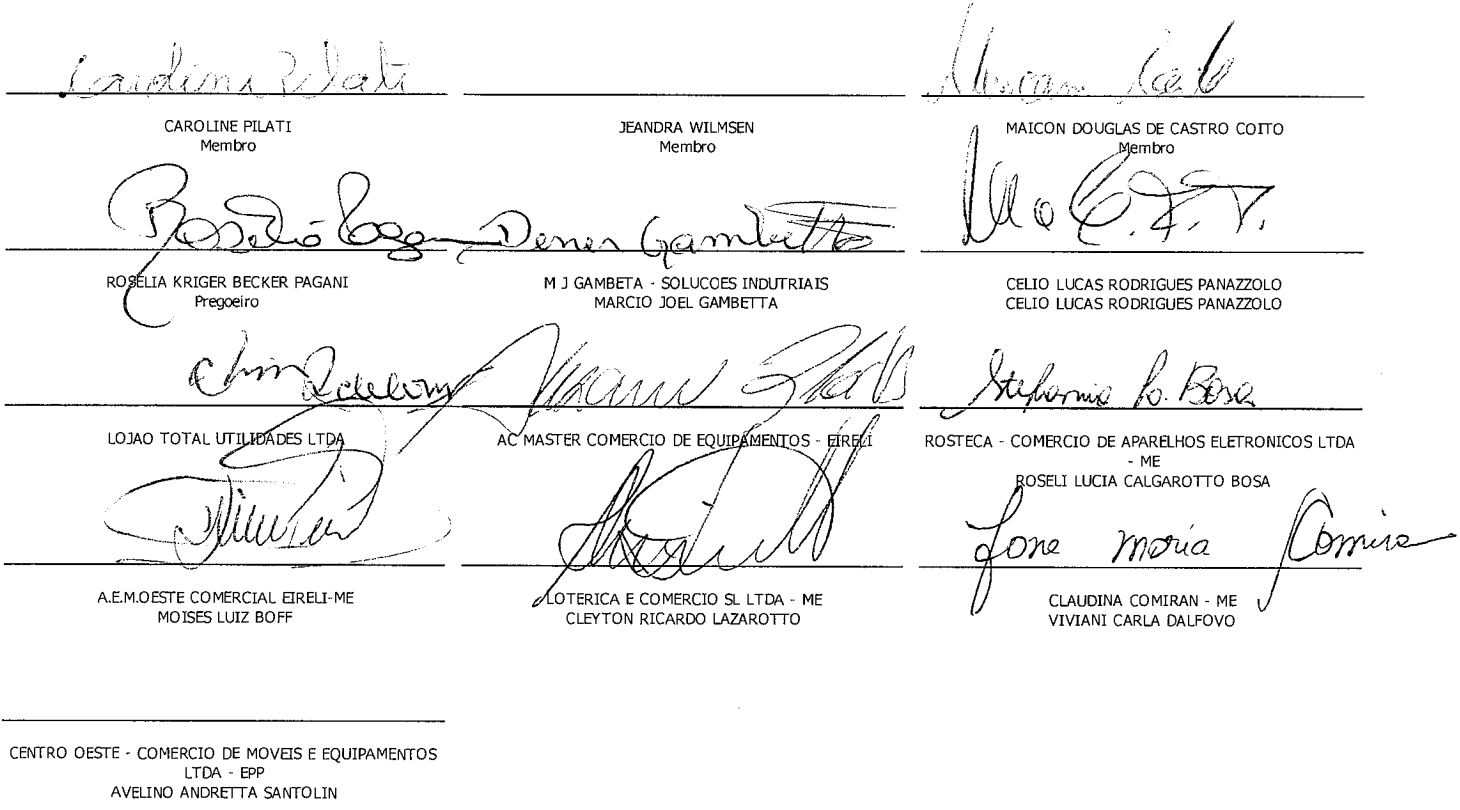 Caroline Pilati
CAROLINE PILATI
Membro
JEANDRA WILMSEN
Membro
MAICON DOUGLAS DE CASTRO COITO
Membro
ROSELIA KRIGER BECKER PAGANI
Pregoeiro
Dener Gambetta
M J GAMBETA - SOLUCOES INDUTRIAIS
MARCIO JOEL GAMBETTA
CELIO LUCAS RODRIGUES PANAZZOLO
CELIO LUCAS RODRIGUES PANAZZOLO
LOJAO TOTAL UTILIDADES LTDA
AC MASTER COMERCIO DE EQUIPAMENTOS - EIRELI
Bosa
ROSTECA - COMERCIO DE APARELHOS ELETRONICOS LTDA
- ME
ROSELI LUCIA CALGAROTTO BOSA
A.E.M.OESTE COMERCIAL EIRELI-ME
MOISES LUIZ BOFF
LOTERICA E COMERCIO SL LTDA - ME
CLEYTON RICARDO LAZAROTTO
maria
CLAUDINA COMIRAN - ME
VIVIANI CARLA DALFOVO
CENTRO OESTE - COMERCIO DE MOVEIS E EQUIPAMENTOS
LTDA - EPP
AVELINO ANDRETTA SANTOLIN